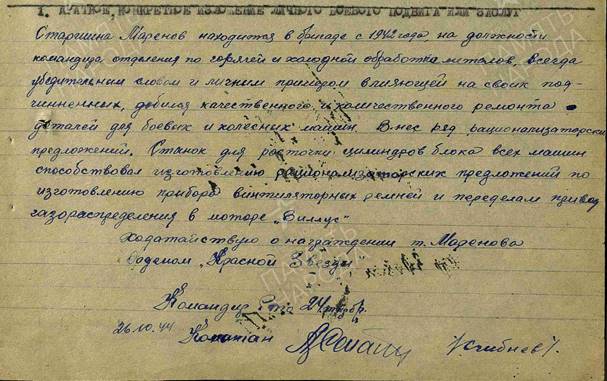 1. КРАТКОЕ, КОНКРЕТНОЕ ИЗЛОЖЕНИЕ ЛИЧНОГО БОЕВОГО ПОДВИГА ИЛИ ЗАСЛУГ
Старшина Маренов находится в бригаде с 1942 года на должности
командира отделения по горячей и холодной обработке металов, всегда
убедительным словом и личным примером влияющей на своих под-
чиненных, добился качественного и количественного ремонта
деталей для боевых и колесных машин. Внес ряд рационализаторских
предложений. Станок для расточки цилиндров блока всех машин
способствовал изготовлению рационализаторских предложений по
изготовлению прибора вентиляторных ремней и переделал привод
газораспределения в моторе „Виллус"
Ходатайствую о награждении т. Маренова
Орденом „Красной Звезды"
Командир 24
26.10.44 Капитан
ПАМЯТЬ НАРОДА
ПАМЯТЬ НАРОДА